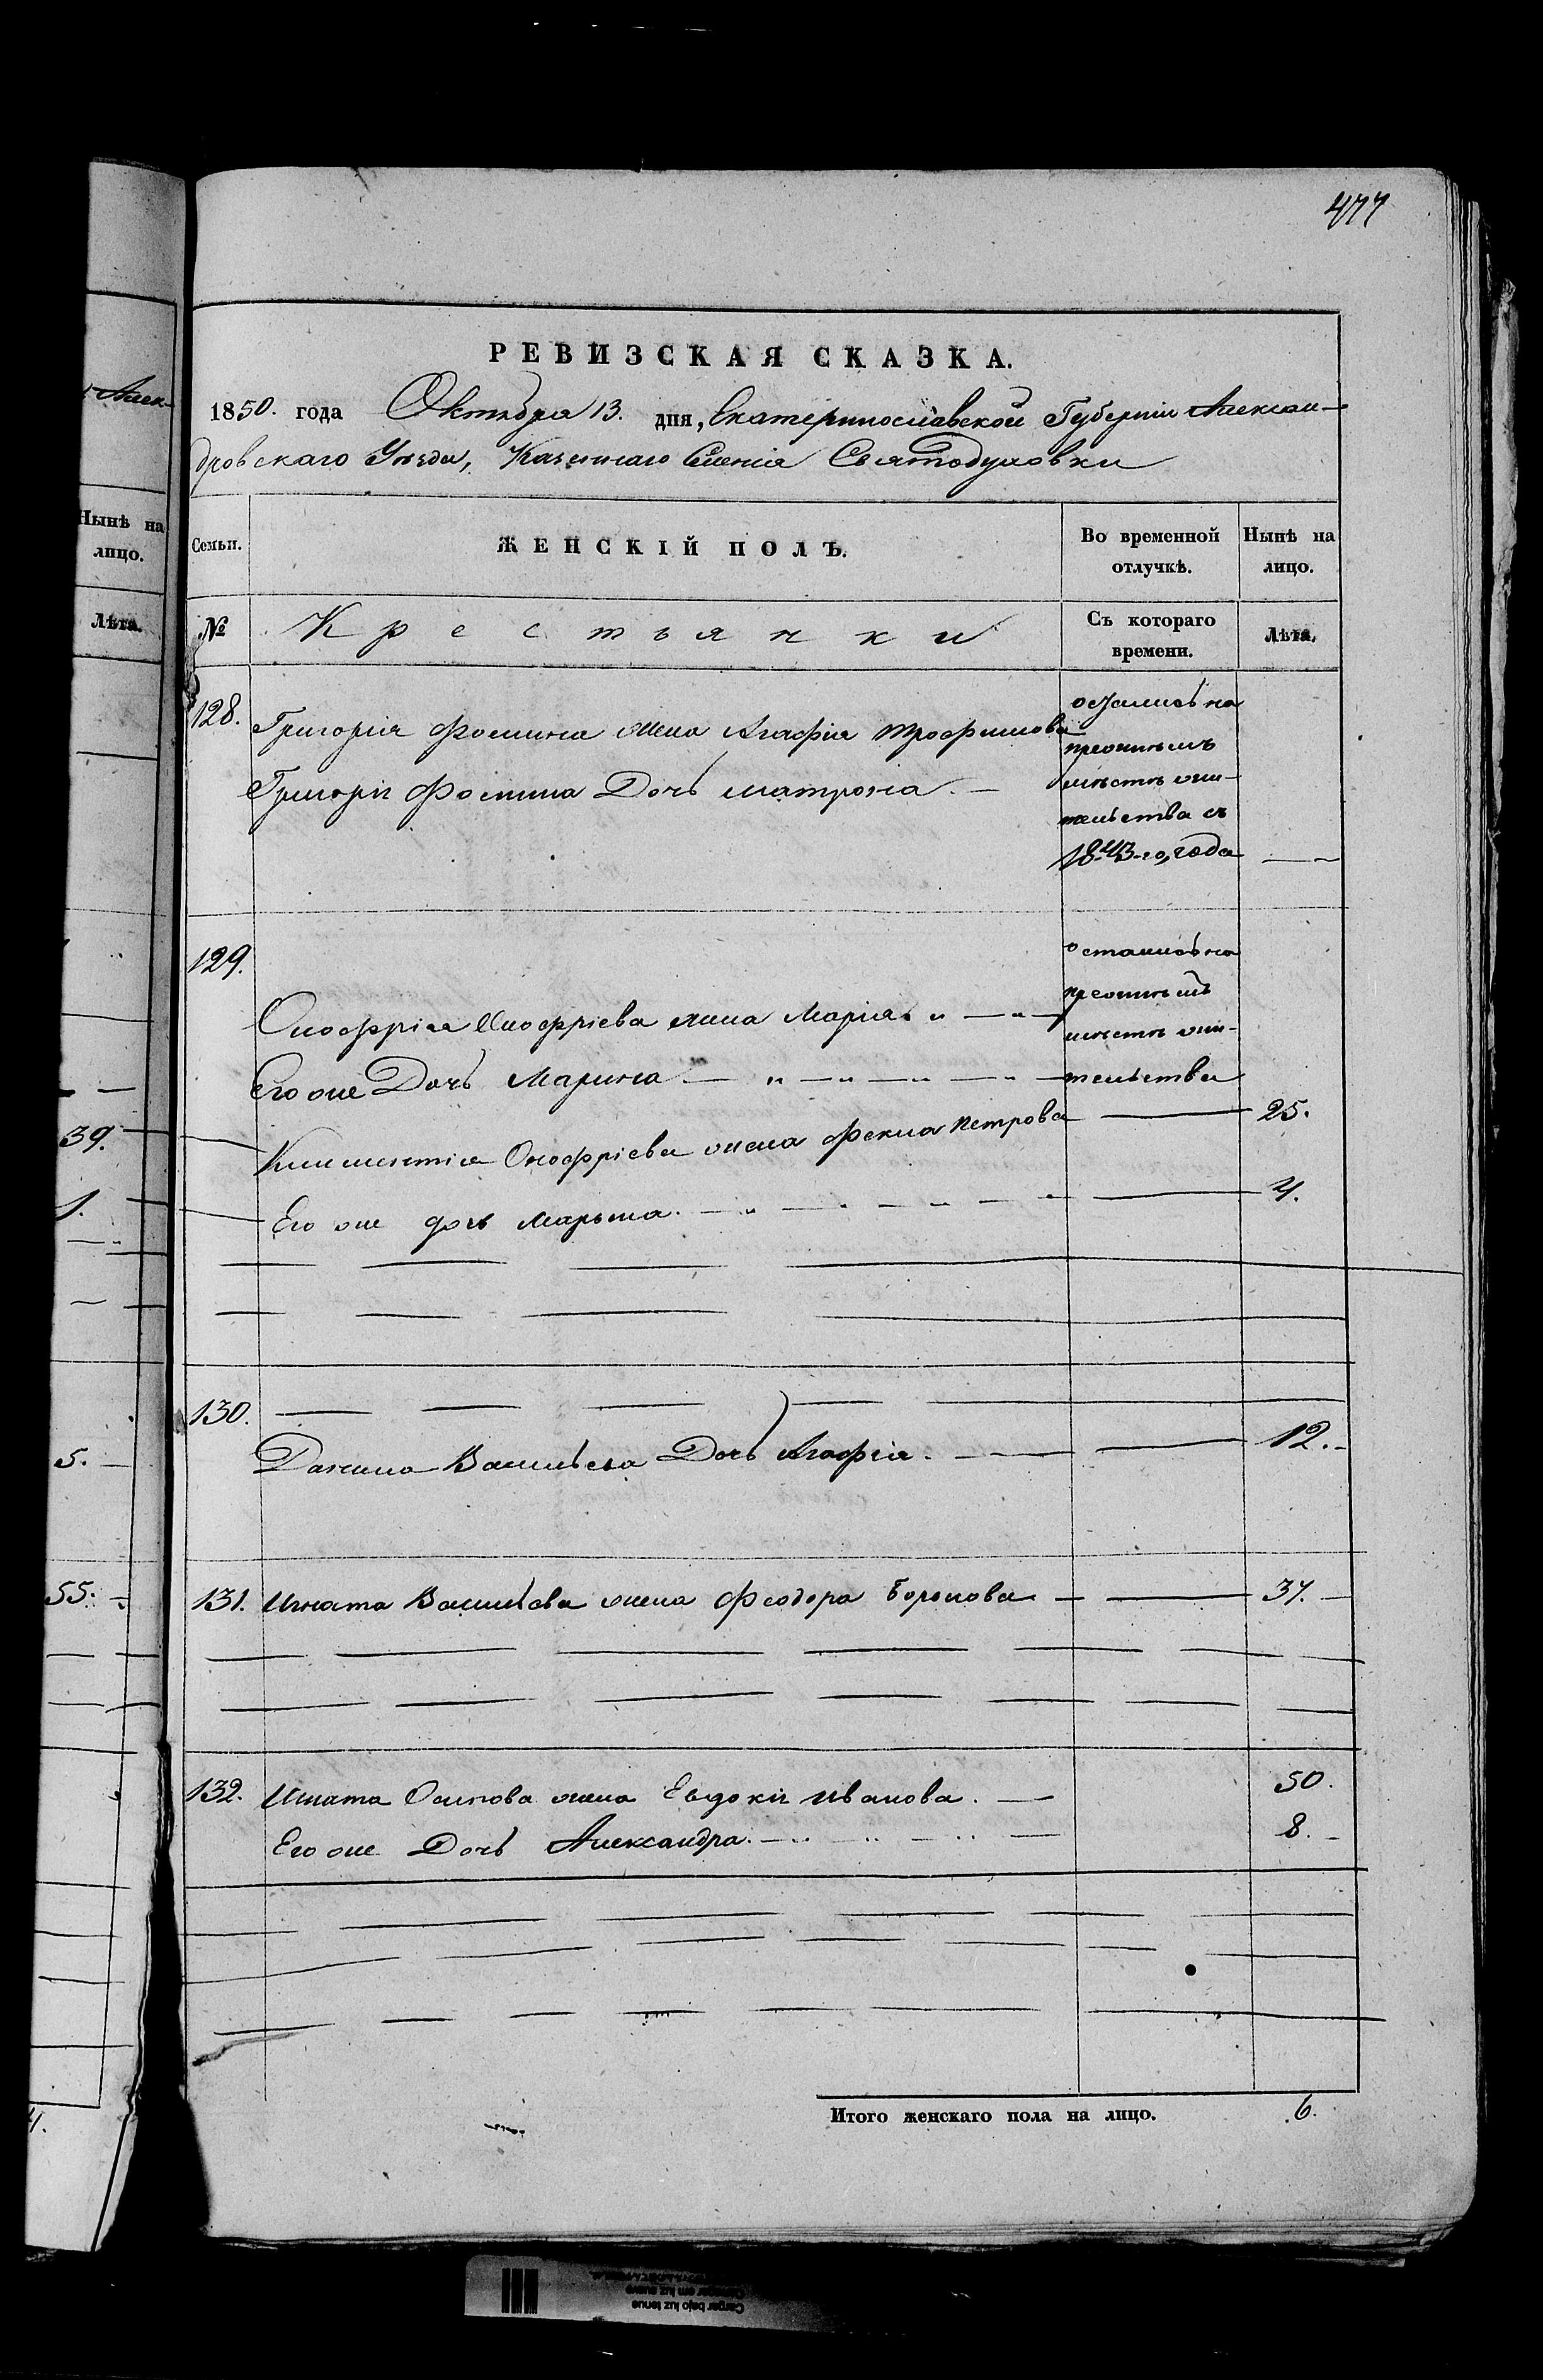 477
РЕВИЗСКАЯ СКАЗКА.
1850. года Октября 13. дня, Екатеринославской Губерніи Алексан-
дровскаго Уѣзда, Казеннаго Селенія Святодуховки
Алек-
Нынѣ на
лицо.
Лѣта.
39.
1.
5.
55.
Семьи.
ЖЕНСКІЙ ПОЛЪ.
Во временной
отлучкѣ.
Нынѣ на
лицо.
№
Крестьянки
Съ котораго
времени.
Лѣта.
128.
Григорія Фомина жена Агафія Трофимова
Григорія Фомина Дочь Матрона.
остались на
прежнемъ
мѣстѣ жи-
тельства съ
1843-го, года
129.
Онофрія Онофріева жена Марія
Его же Дочь Марина
остались на
прежнемъ
мѣстѣ жи-
тельства
Климентія Онофріева жена Фекла Петрова 25.
Его же дочь Марьяна. 4.
130.
Данила Васильева Дочь Агафія. 12.
131. Игната Васильева жена Феодора 37.
132. Игната Осипова жена Евдокія Иванова. 50.
Его же Дочь Александра. 8.
Итого женскаго пола на лицо. 6.
Cargar bajo luz tenue